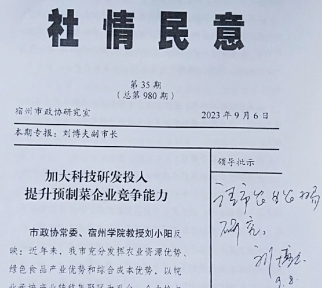 社情民意
第 35 期
（总第 980 期）
宿州市政协研究室 2023 年 9 月 6 日
本期专报：刘博夫副市长
加大科技研发投入
提升预制菜企业竞争能力
领导批示
市政协常委、宿州学院教授刘小阳反
映：近年来，我市充分发挥农业资源优势、
绿色食品产业优势和综合成本优势，以皖
研究。
9.8.